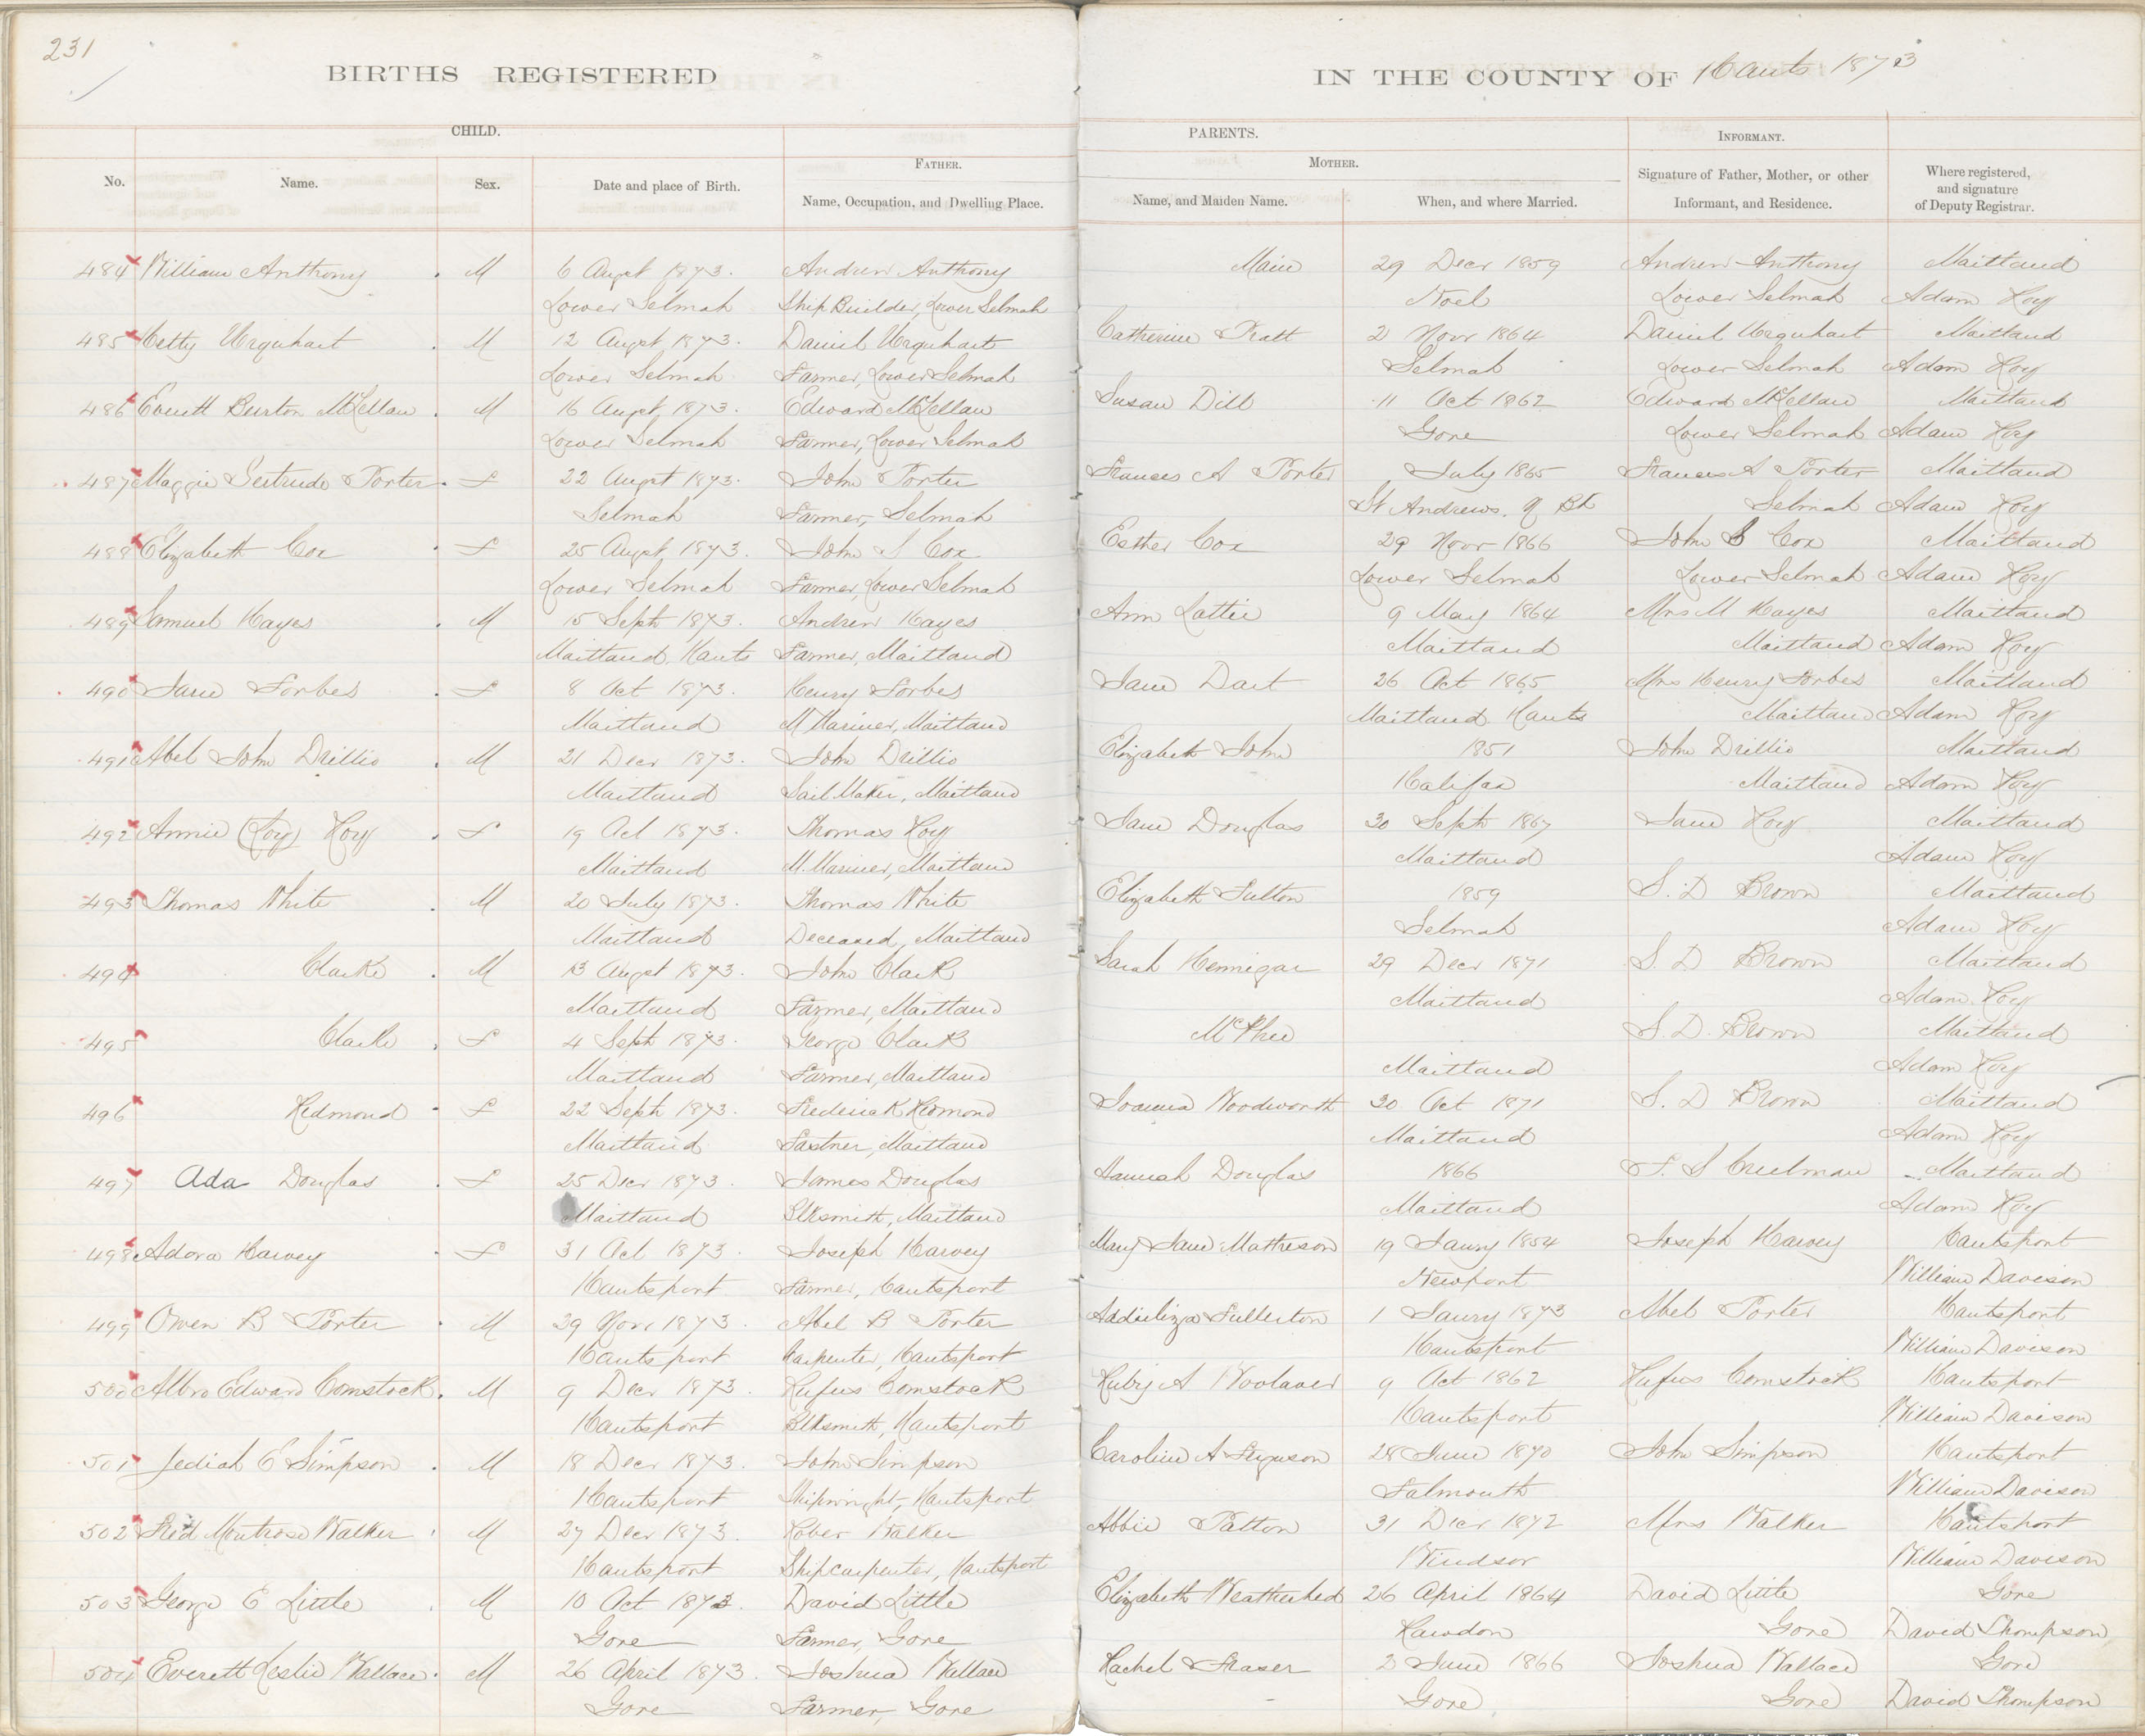 231
BIRTHS REGISTERED IN THE COUNTY OF Hants 1873
CHILD. PARENTS. INFORMANT.
FATHER. MOTHER.
No. Name. Sex. Date and place of Birth. Name, Occupation, and Dwelling Place. Name, and Maiden Name. When, and where Married. Signature of Father, Mother, or other Informant, and Residence. Where registered, and signature of Deputy Registrar.
484 William Anthony M 6 Augst 1873. Andrew Anthony Main 29 Decr 1859 Andrew Anthony Maitland
Lower Selmah Ship Builder, Lower Selmah Noel Lower Selmah Adam Roy
485 Hetty Urquhart M 12 Augst 1873. Daniel Urquhart Catherine Pratt 2 Novr 1864 Daniel Urquhart Maitland
Lower Selmah Farmer, Lower Selmah Selmah Lower Selmah Adam Roy
486 Everett Burton McLellan M 16 Augst 1873. Edward McLellan Susan Dill 11 Oct 1862 Edward McLellan Maitland
Lower Selmah Farmer, Lower Selmah Gore Lower Selmah Adam Roy
487 Maggie Gertrude Porter F 22 Augst 1873. John Porter Frances A Porter July 1865 Frances A Porter Maitland
Selmah Farmer, Selmah St Andrews. Q Bk Selmah Adam Roy
488 Elizabeth Cox F 25 Augst 1873. John S Cox Esther Cox 29 Novr 1866 John S Cox Maitland
Lower Selmah Farmer, Lower Selmah Lower Selmah Lower Selmah Adam Roy
489 Samuel Hayes M 15 Sept 1873. Andrew Hayes Ann Lattie 9 May 1864 Mrs M Hayes Maitland
Maitland, Hants Farmer, Maitland Maitland Maitland Adam Roy
490 Jane Forbes F 8 Oct 1873. Henry Forbes Jane Dart 26 Oct 1865 Mrs Henry Forbes Maitland
Maitland M Mariner, Maitland Maitland Hants Maitland Adam Roy
491 Abel John Drillio M 21 Decr 1873. John Drillio Elizabeth John 1851 John Drillio Maitland
Maitland Sail Maker, Maitland Halifax Maitland Adam Roy
492 Annie (Roy) Roy F 19 Oct 1873. Thomas Roy Jane Douglas 30 Sept 1867 Jane Roy Maitland
Maitland M. Mariner, Maitland Maitland Adam Roy
493 Thomas White M 20 July 1873. Thomas White Elizabeth Fulton 1859 S. D Brown Maitland
Maitland Deceased, Maitland Selmah Adam Roy
494 Clarke M 13 Augst 1873. John Clark Sarah Hennigar 29 Decr 1871 S. D Brown Maitland
Maitland Farmer, Maitland Maitland Adam Roy
495 Clarke F 4 Sept 1873. George Clark McPhee S. D. Brown Maitland
Maitland Farmer, Maitland Maitland Adam Roy
496 Redmond F 22 Sept 1873. Frederick Redmond Joanna Woodworth 30 Oct 1871 S. D Brown Maitland
Maitland Fastner, Maitland Maitland Adam Roy
497 Ada Douglas F 25 Decr 1873. James Douglas Hannah Douglas 1866 F. S Creelman Maitland
Maitland Blksmith, Maitland Maitland Adam Roy
498 Adora Harvey F 31 Oct 1873. Joseph Harvey Mary Jane Mathreson 19 Jauny 1854 Joseph Harvey Hantsport
Hantsport Farmer, Hantsport Newport William Davison
499 Owen B Porter M 29 Novr 1873. Abel B Porter Addieliza Fullerton 1 Jaury 1873 Abel Porter Hantsport
Hantsport Carpenter, Hantsport Hantsport William Davison
500 Albro Edward Comstock M 9 Decr 1873. Rufus Comstock Ruby A Woolaver 9 Oct 1862 Rufus Comstock Hantsport
Hantsport Blksmith, Hantsport Hantsport William Davison
501 Jediah E Simpson M 18 Decr 1873. John Simpson Caroline A Ferguson 28 June 1870 John Simpson Hantsport
Hantsport Shipwright, Hantsport Falmouth William Davison
502 Fred Montrose Walker M 27 Decr 1873. Rober Walker Abbie Patton 31 Decr 1872 Mrs Walker Hantsport
Hantsport Shipcarpenter, Hantsport Windsor William Davison
503 George E Little M 10 Oct 1873. David Little Elizabeth Weatherhed 26 April 1864 David Little Gore
Gore Farmer, Gore Rawdon Gore David Thompson
504 Everett Leslie Wallace M 26 April 1873. Joshua Wallace Rachel Fraser 2 June 1866 Joshua Wallace Gore
Gore Farmer, Gore Gore Gore David Thompson